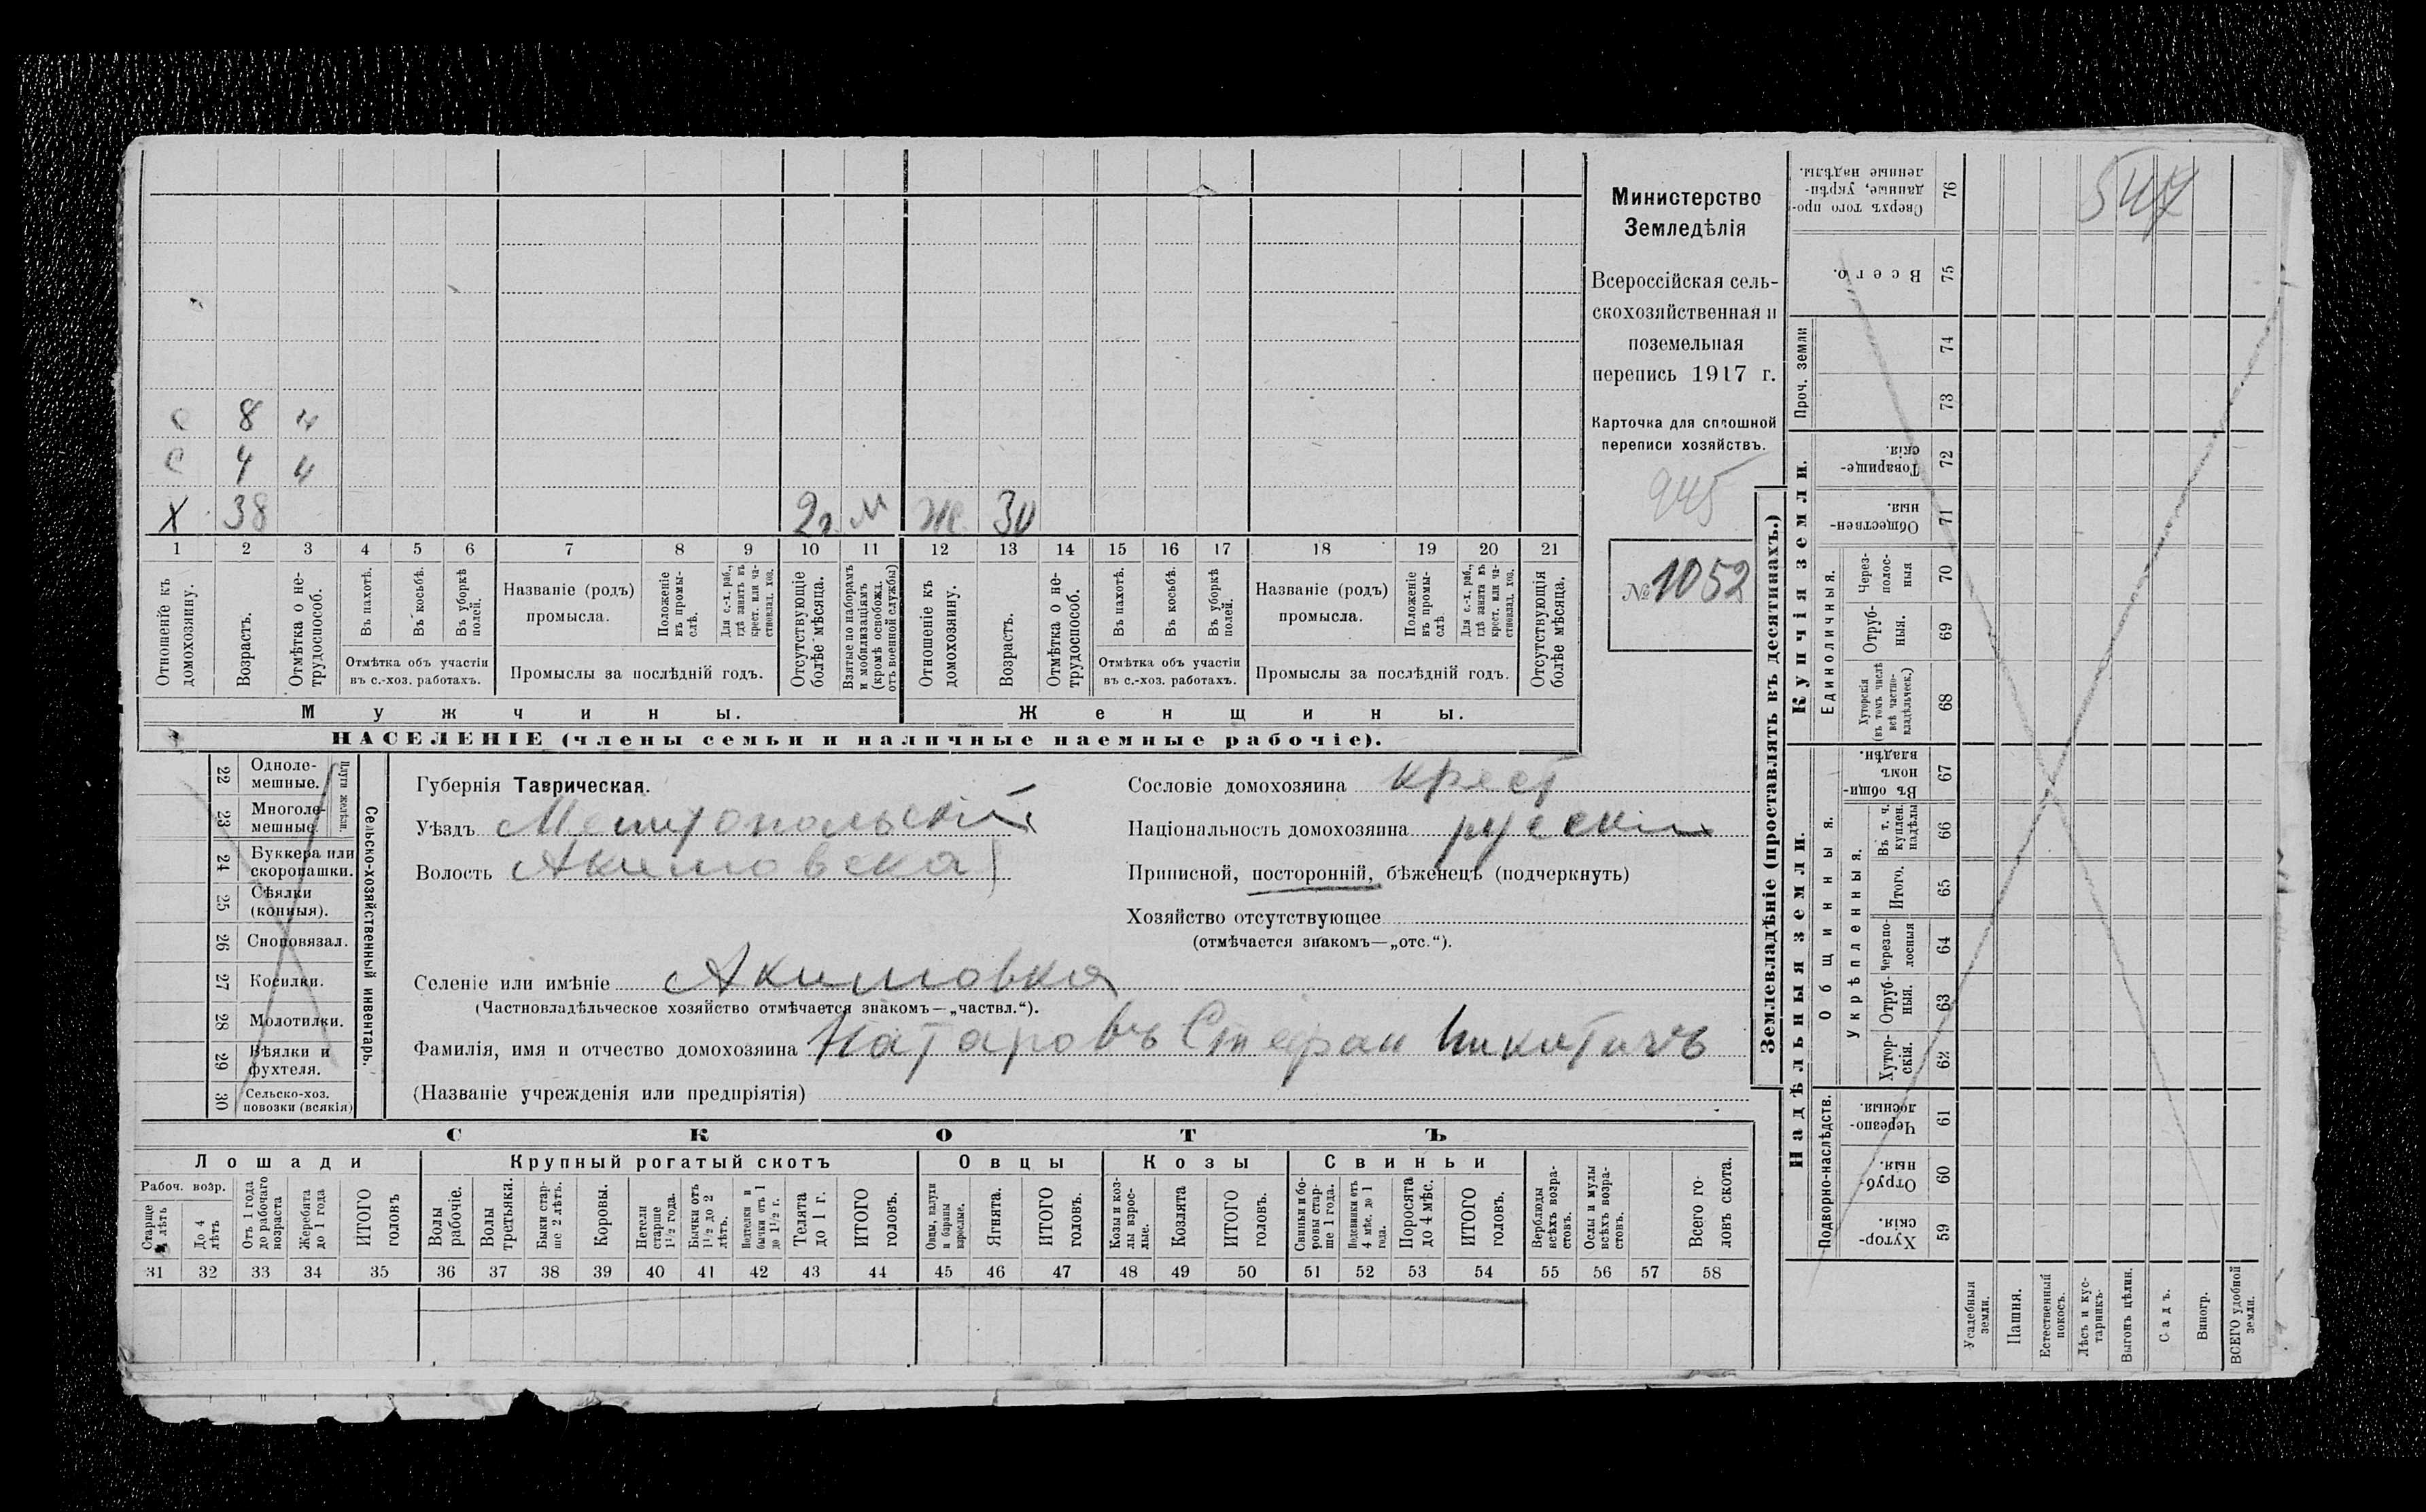 Министерство
Земледѣлія
Всероссійская сель-
скохозяйственная и
поземельная
перепись 1917 г.
Карточка для сплошной
переписи хозяйствъ.
945
№ 1052
с 8 н
с 4 н
Х 38 2г. м Ж 30
1 2 3 4 5 6 7 8 9 10 11 12 13 14 15 16 17 18 19 20 21
Отношеніе къ домохозяину.
Возрастъ.
Отмѣтка о не-трудоспособ.
Въ пахотѣ.
Въ косьбѣ.
Въ уборкѣ полей.
Отмѣтка объ участіи
въ с.-хоз. работахъ.
Названіе (родъ)
промысла.
Положеніе въ промы-слѣ.
Для с.-х. раб., гдѣ занятъ въ крест. или ча-стновлад. хоз.
Промыслы за послѣдній годъ.
Отсутствующіе болѣе мѣсяца.
Взятые по наборамъ и мобилизаціямъ (кромѣ освобожд. отъ военной службы)
Отношеніе къ домохозяину.
Возрастъ.
Отмѣтка о не-трудоспособ.
Въ пахотѣ.
Въ косьбѣ.
Въ уборкѣ полей.
Отмѣтка объ участіи
въ с.-хоз. работахъ.
Названіе (родъ)
промысла.
Положеніе въ промы-слѣ
Для с.-х. раб., гдѣ занята въ крест. или ча-стновлад. хоз.
Промыслы за послѣдній годъ.
Отсутствующія болѣе мѣсяца.
Мужчины. Женщины.
НАСЕЛЕНІЕ (члены семьи и наличные наемные рабочіе).
Сельско-хозяйственный инвентарь.
Плуги желѣзн.
22 Одноле-мешные.
23 Многоле-мешные.
24 Буккера или скоропашки.
25 Сѣялки (конныя).
26 Сноповязал.
27 Косилки.
28 Молотилки.
29 Вѣялки и фухтеля.
30 Сельско-хоз. повозки (всякія)
Губернія Таврическая.
Уѣздъ Мелитопольскій
Волость Акимовская
Селеніе или имѣніе Акимовка
(Частновладѣльческое хозяйство отмѣчается знакомъ—„частвл.“).
Сословіе домохозяина крест
Національность домохозяина русскій
Приписной, посторонній, бѣженецъ (подчеркнуть)
Хозяйство отсутствующее
(отмѣчается знакомъ—„отс.“).
Фамилія, имя и отчество домохозяина Натаровъ Стефан Никитичъ
(Названіе учрежденія или предпріятія)
СКОТЪ
Лошади Крупный рогатый скотъ Овцы Козы Свиньи
Рабоч. возр.
Старше 4 лѣтъ
До 4 лѣтъ
Отъ 1 года до рабочаго возраста
Жеребята до 1 года
ИТОГО головъ
Волы рабочіе.
Волы третьяки.
Быки стар-ше 2 лѣтъ.
Коровы.
Нетели старше 1½ года.
Бычки отъ 1½ до 2 лѣтъ.
Нетелки и бычки отъ 1 до 1½ г.
Телята до 1 г.
ИТОГО головъ.
Овцы, валухи и бараны взрослые.
Ягнята.
ИТОГО головъ.
Козы и коз-лы взрос-лые.
Козлята
ИТОГО головъ.
Свиньи и бо-ровы стар-ше 1 года.
Подсвинки отъ 4 мѣс. до 1 года.
Поросята до 4 мѣс.
ИТОГО головъ.
Верблюды всѣхъ возра-стовъ.
Ослы и мулы всѣхъ возра-стовъ.
Всего го-ловъ скота.
31 32 33 34 35 36 37 38 39 40 41 42 43 44 45 46 47 48 49 50 51 52 53 54 55 56 57 58
Землевладѣніе (проставлять въ десятинахъ.)
Надѣльныя земли. Купчія земли.
Подворно-наслѣдств.
Общинныя.
Укрѣпленныя.
Единоличныя.
Проч. земли
547
76 Сверхъ того про-данные, укрѣп-ленные надѣлы.
75 Всего.
74
73
72 Товарище-скія.
71 Обществен-ныя.
70 Через-полос-ныя
69 Отруб-ныя.
68 Хуторскія (въ томъ числѣ всѣ частно-владѣльческ.)
67 Въ общи-номъ владѣн.
66 Въ т. ч. куплен. надѣлы
65 Итого.
64 Черезпо-лосныя
63 Отруб-ныя.
62 Хутор-скія.
61 Черезпо-лосныя.
60 Отруб-ныя.
59 Хутор-скія.
Усадебныя земли.
Пашня.
Естественный покосъ.
Лѣсъ и кус-тарникъ.
Выгонъ цѣлин.
Садъ.
Виногр.
ВСЕГО удобной земли.